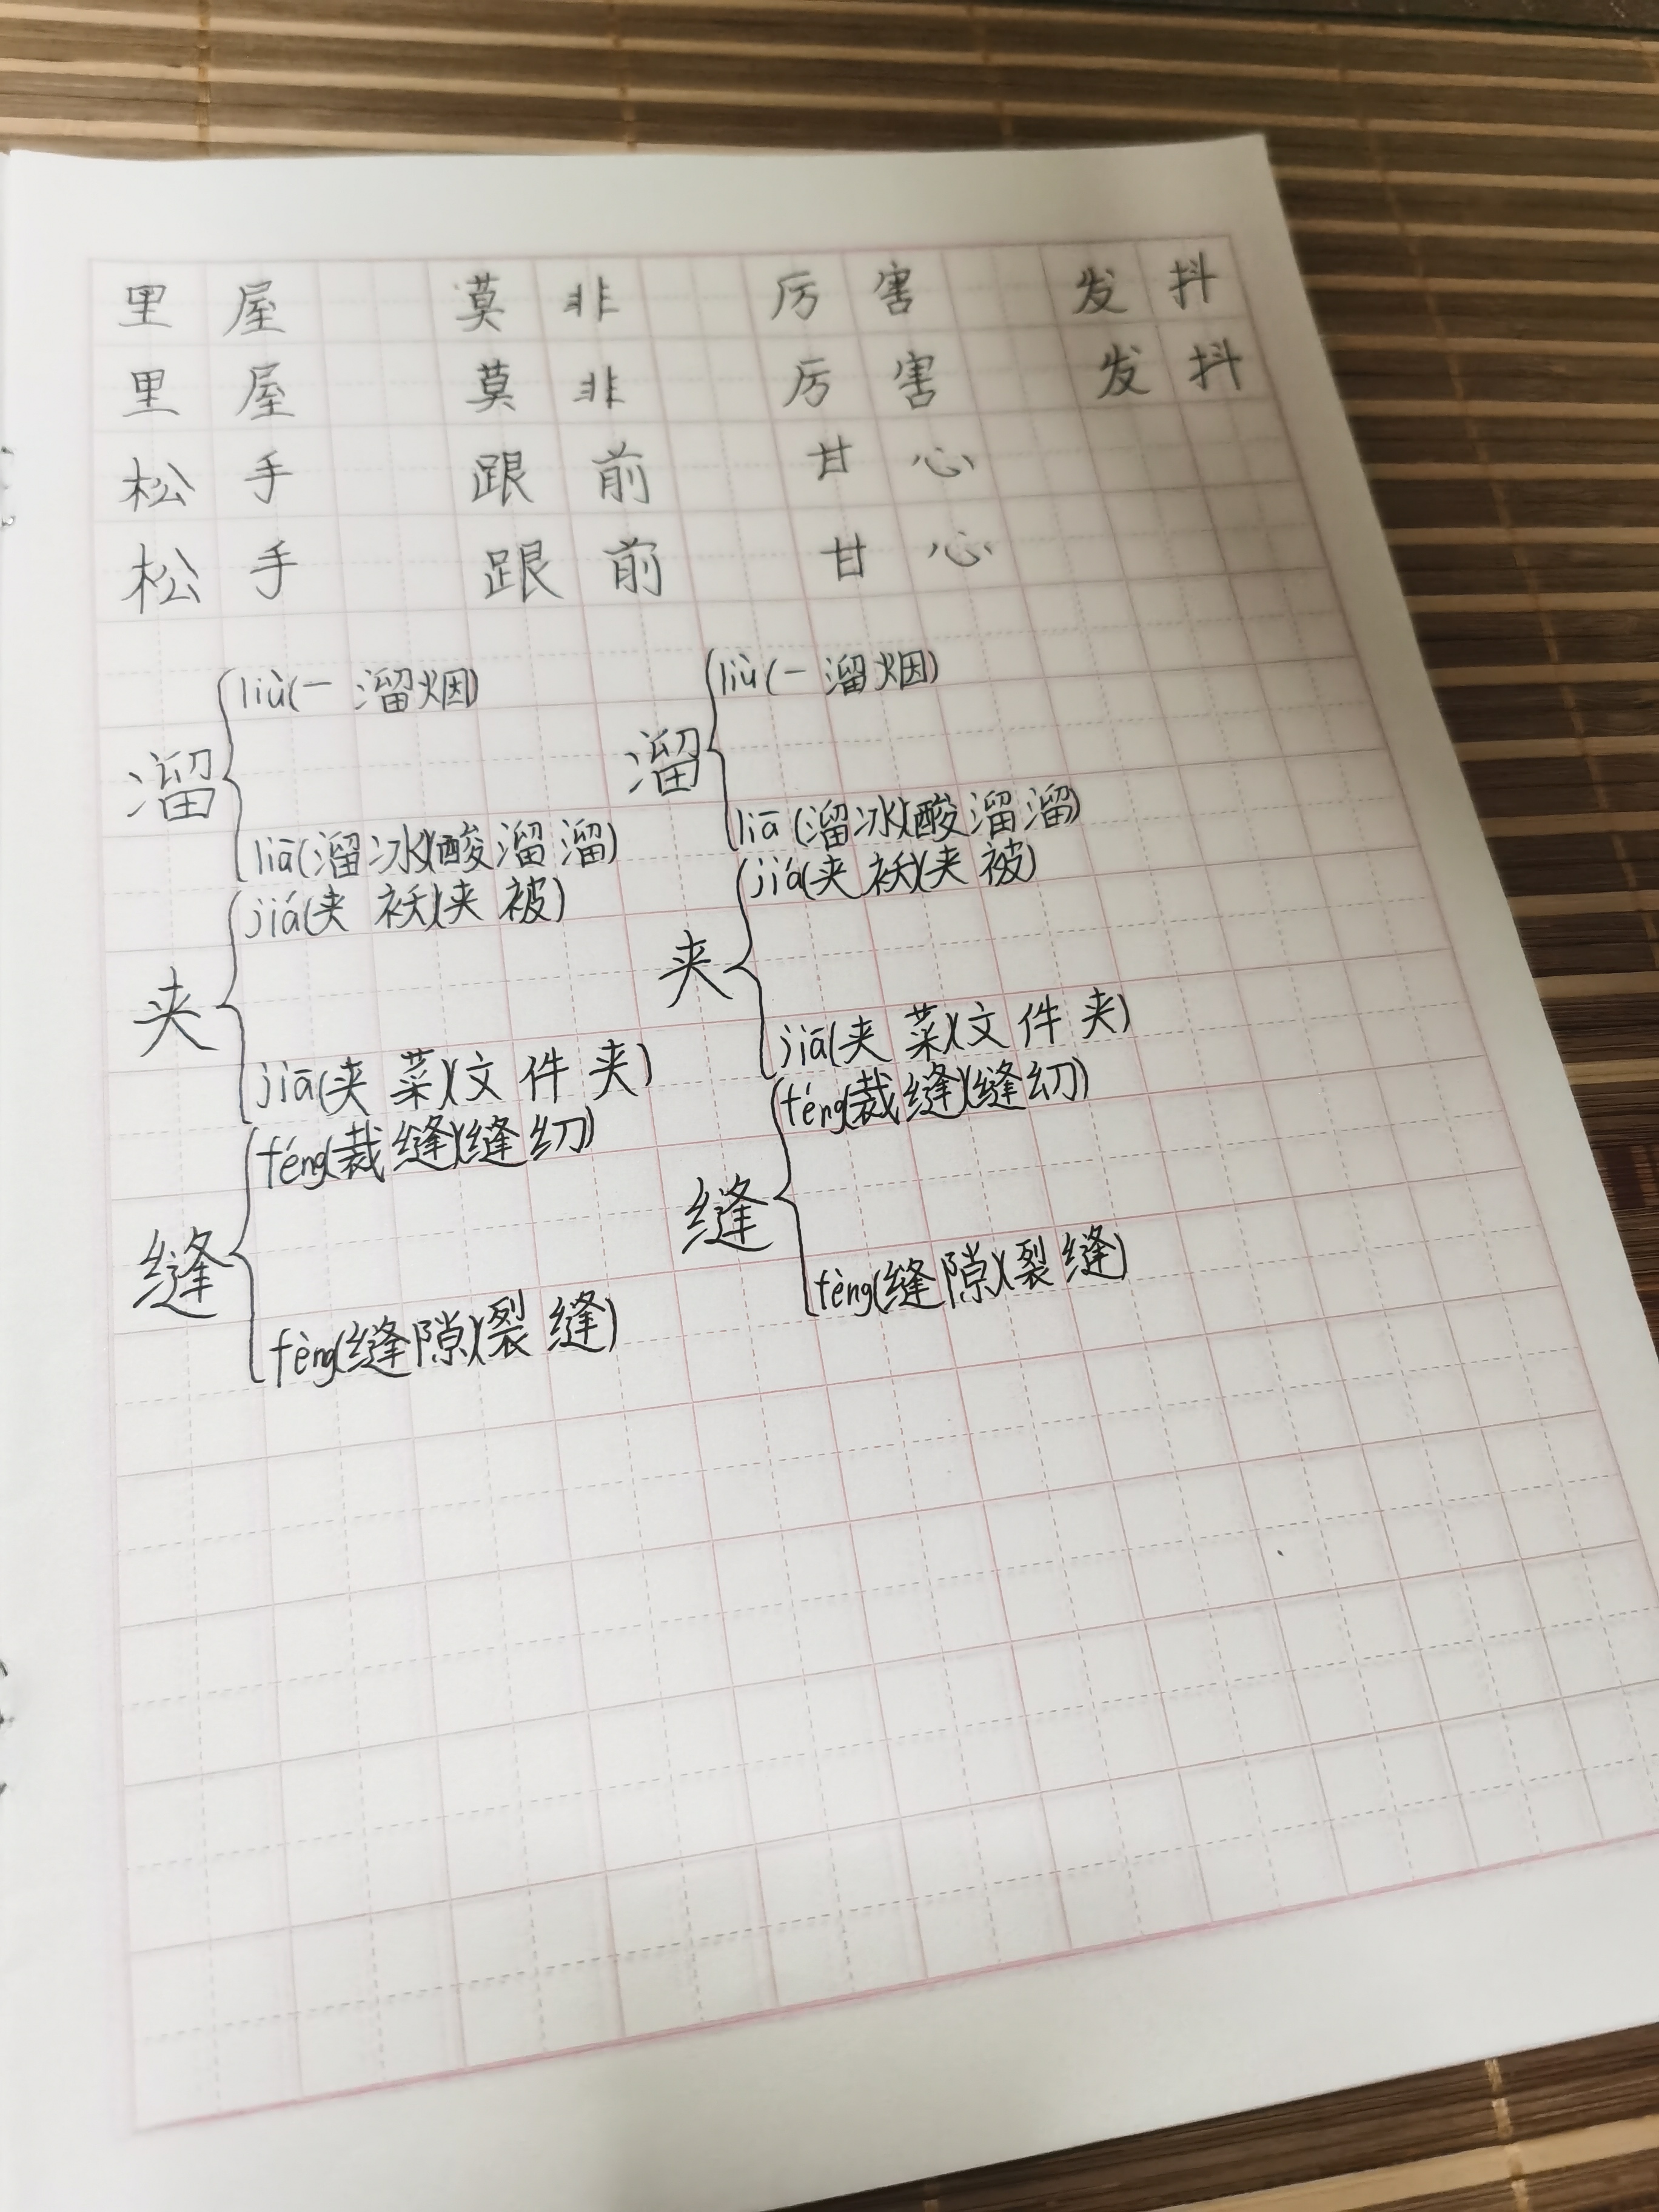 里屋 莫非 厉害 发抖
里屋 莫非 厉害 发抖
松手 跟前 甘心
松手 跟前 甘心
liù(一溜烟) liù(一溜烟)
溜 溜
liū(溜冰)(酸溜溜) liū(溜冰)(酸溜溜)
jiá(夹袄)(夹被) jiá(夹袄)(夹被)
夹 夹
jiā(夹菜)(文件夹) jiā(夹菜)(文件夹)
féng(裁缝)(缝纫) féng(裁缝)(缝纫)
缝 缝
fèng(缝隙)(裂缝) fèng(缝隙)(裂缝)